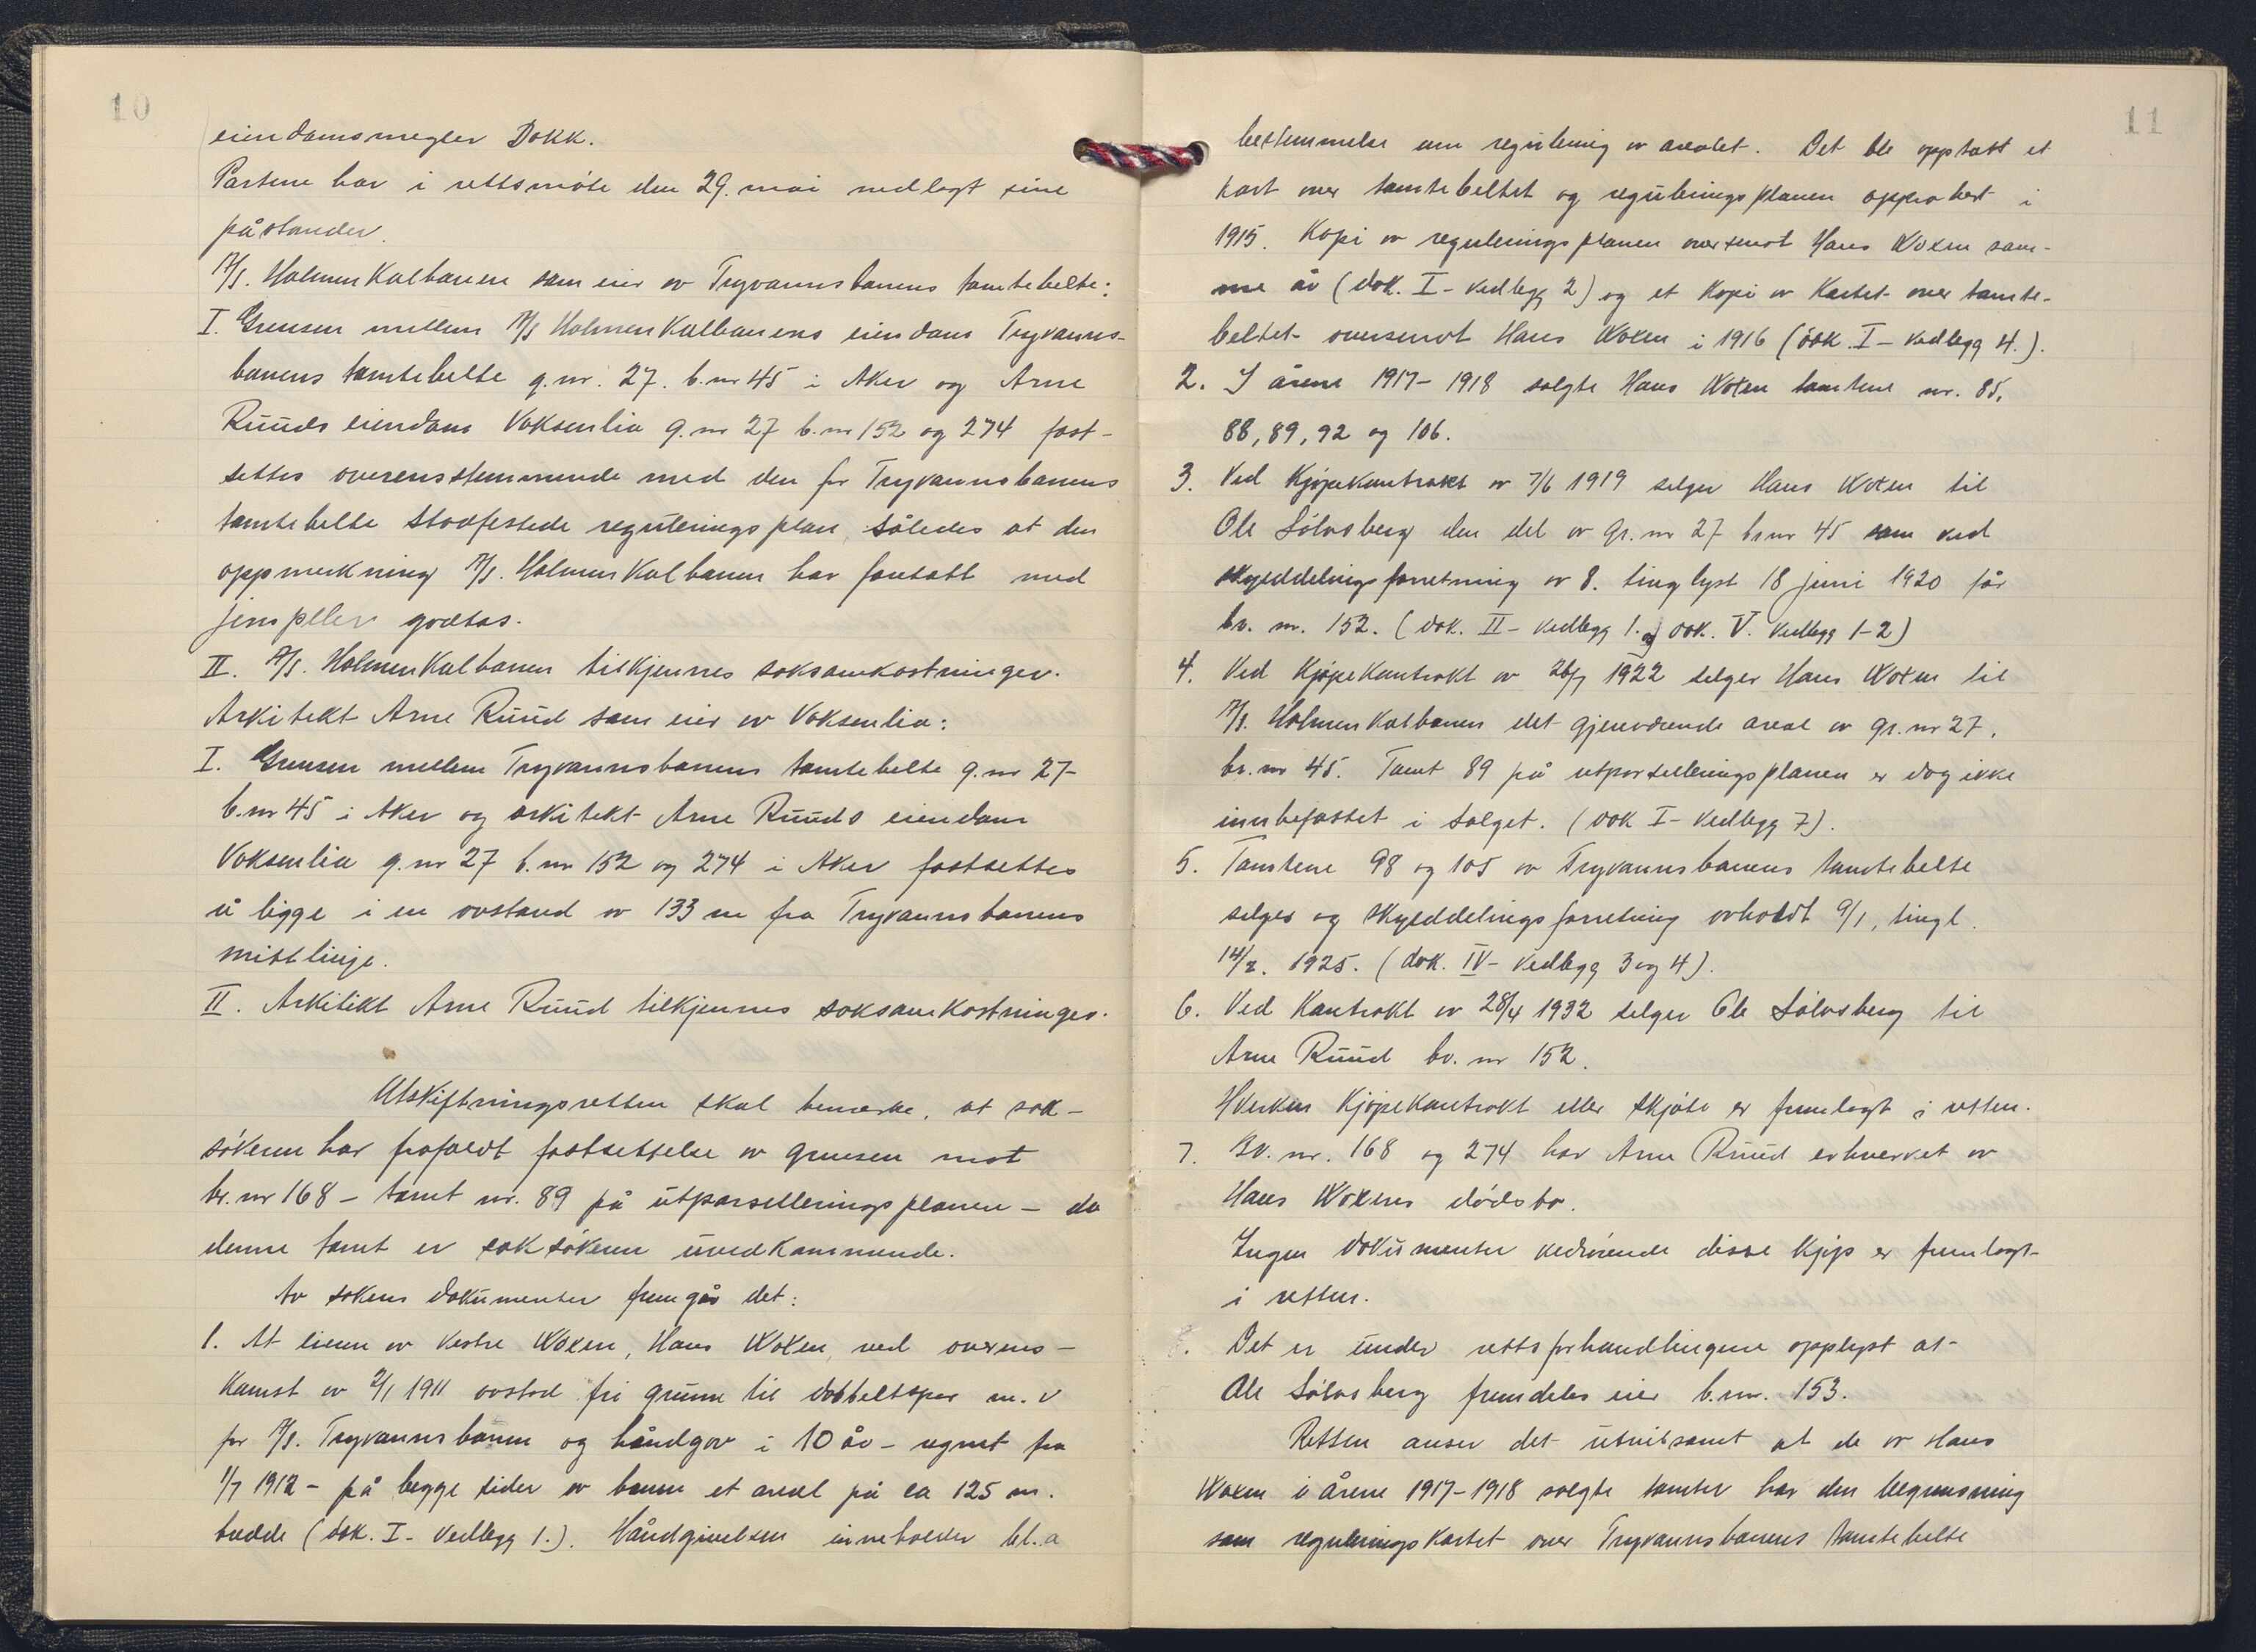 10
eiendomsmegler Dokk.
Partene har i rettsmöte den 29. mai nedlagt sine
påstander.
A/S. Holmenkolbanen som eier av Tryvannsbanens tomtebelte:
I. Grensen mellem A/S Holmenkolbanens eiendom Tryvanns-
banens tomtebelte g.nr. 27. b.nr 45 i Aker og Arne
Ruuds eiendom Voksenlia g.nr 27 b.nr 152 og 274 fast-
settes overensstemmende med den for Tryvannsbanens
tomtebelte stadfestede reguleringsplan, således at den
oppmerkning A/S. Holmenkolbanen har foretatt med
jernpeler godtas.
II. A/S. Holmenkolbanen tilkjennes saksomkostninger.
Arkitekt Arne Ruud som eier av Voksenlia:
I. Grensen mellem Tryvannsbanens tomtebelte g.nr 27-
b.nr 45 i Aker og arkitekt Arne Ruuds eiendom
Voksenlia g.nr 27 b.nr 152 og 274 i Aker fastsettes
å ligge i en avstand av 133 m fra Tryvannsbanens
midtlinje.
II. Arkitekt Arne Ruud tilkjennes saksomkostninger.
Utskiftningsretten skal bemerke, at sak-
sökeren har frafaldt fastsettelse av grensen mot
br.nr 168 - tomt nr. 89 på utparselleringsplanen - da
denne tomt er saksökeren uvedkommende.
Av sakens dokumenter fremgår det:
1. At eieren av Vestre Woxen, Hans Woxen, ved overens-
komst av 2/1 1911 avstod fri grunn til dobbeltspor m.v
for A/S. Tryvannsbanen og håndgav i 10 år - regnet fra
1/7 1912 - på begge sider av banen et areal på ca 125 m.
bredde (dok. I - Vedlegg 1.). Håndgivelsen inneholder bl.a
11
bestemmelse om regulering av arealet. Det ble opptatt et
kart over tomtebeltet og reguleringsplanen approbert i
1915. Kopi av reguleringsplanen oversendt Hans Woxen sam-
me år (dok. I - vedlegg 2) og et kopi av kartet over tomte-
beltet oversendt Hans Woxen i 1916 (dok. I - vedlegg 4.).
2. I årene 1917-1918 solgte Hans Woxen tomtene nr. 85,
88, 89, 92 og 106.
3. Ved kjøpekontrakt av 7/6 1919 selger Hans Woxen til
Ole Sölvsberg den del av gr.nr 27 br.nr 45 som ved
skylddelingsforretning av 8. tinglyst 18 juni 1920 får
br. nr. 152. (dok. II - vedlegg 1. og dok. V. vedlegg 1-2)
4. Ved kjøpekontrakt av 26/7 1922 selger Hans Woxen til
A/S. Holmenkolbanen det gjenværende areal av gr.nr 27,
br.nr 45. Tomt 89 på utparselleringsplanen er dog ikke
innbefattet i salget. (dok I - Vedlegg 7).
5. Tomtene 98 og 105 av Tryvannsbanens tomtebelte
selges og skylddelingsforretning avholdt 9/1, tingl.
14/2. 1925. (dok. IV - Vedlegg 3 og 4).
6. Ved kontrakt av 28/4 1932 selger Ole Sölvsberg til
Arne Ruud br. nr 152.
Hverken kjøpekontrakt eller skjöte er fremlagt i retten.
7. Br. nr. 168 og 274 har Arne Ruud erhvervet av
Hans Woxens dödsbo.
Ingen dokumenter vedrörende disse kjøp er fremlagt
i retten.
8. Det er under rettsforhandlingene opplyst at
Ole Sölvsberg fremdeles eier b.nr. 153.
Retten anser det utvilsomt at de av Hans
Woxen i årene 1917-1918 solgte tomter har den begrensning
som reguleringskartet over Tryvannsbanens tomtebelte